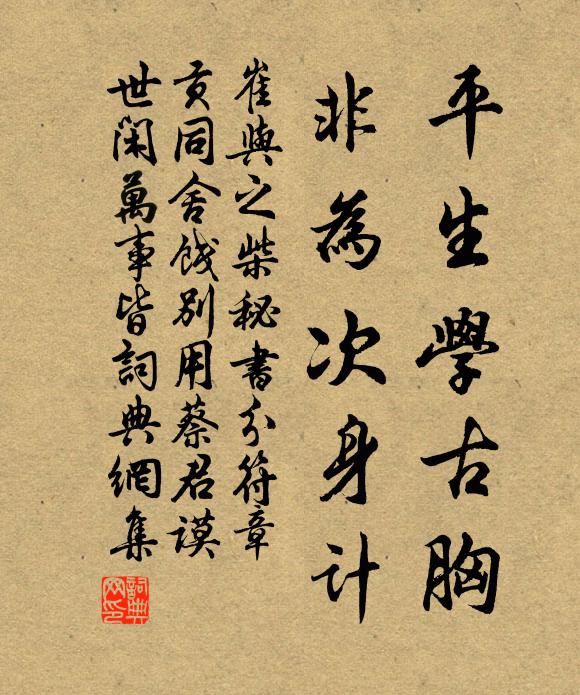 平生學古胸
非為次身計
崔與之柴秘書分符章
貢同舍餞別用蔡君謨
世閑萬事皆詞典網集
詞典网印